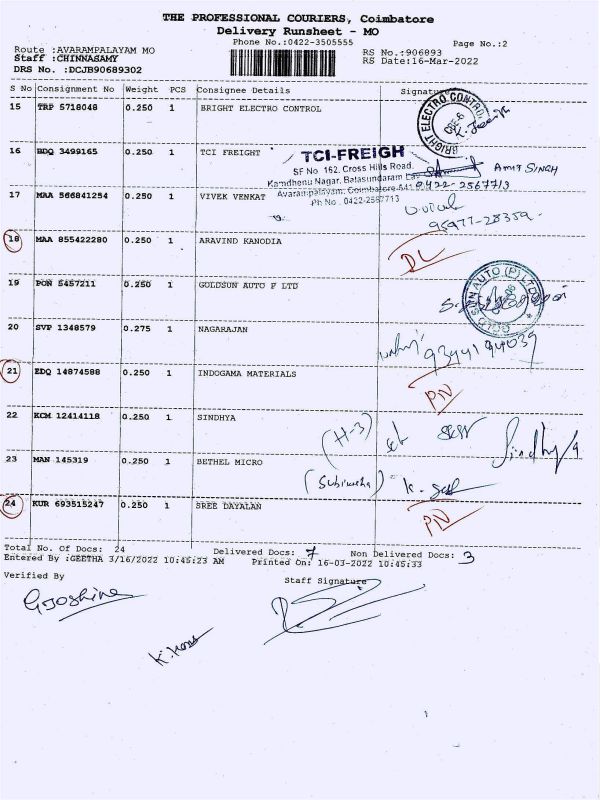 THE PROFESSIONAL COURIERS, Coimbatore
Delivery Runsheet - MO
Phone No.:0422-3505555
Page No.:2
Route :AVARAMPALAYAM MO
RS No.:906893
Staff :CHINNASAMY
RS Date:16-Mar-2022
DRS No. :DCJB90689302
S No Consignment No Weight PCS Consignee Details Signature
15 TRP 5718048 0.250 1 BRIGHT ELECTRO CONTROL
BRIGHT ELECTRO CONTROL
CBE-6
16 BDQ 3499165 0.250 1 TCI FREIGHT
TCI-FREIGH
SF No 162, Cross Hills Road,
Kamdhenu Nagar, Balasundaram
Avarampalayam, Coimbatore-641
Ph No . 0422-2567713
AMIT SINGH
0422-2567713
17 MAA 566841254 0.250 1 VIVEK VENKAT
95977-28359
18 MAA 855422280 0.250 1 ARAVIND KANODIA
DL
19 PON 5457211 0.250 1 GOLDSUN AUTO P LTD
GOLDSUN AUTO (P) LTD
20 SVP 1348579 0.275 1 NAGARAJAN
21 EDQ 14874588 0.250 1 INDOGAMA MATERIALS
PN
22 KCM 12414118 0.250 1 SINDHYA
(H-3)
Sindhya
23 MAN 145319 0.250 1 BETHEL MICRO
24 KUR 693515247 0.250 1 SREE DAYALAN
PN
Total No. Of Docs: 24 Delivered Docs: 7 Non Delivered Docs: 3
Entered By :GEETHA 3/16/2022 10:45:23 AM Printed On: 16-03-2022 10:45:33
Verified By Staff Signature